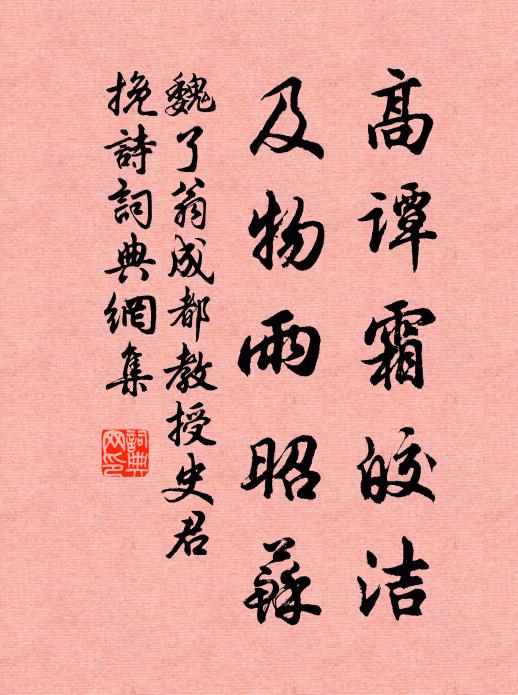 高谭霜皎洁
及物雨昭蘇
魏了翁成都教授史君
挽詩詞典網集
詞典网印